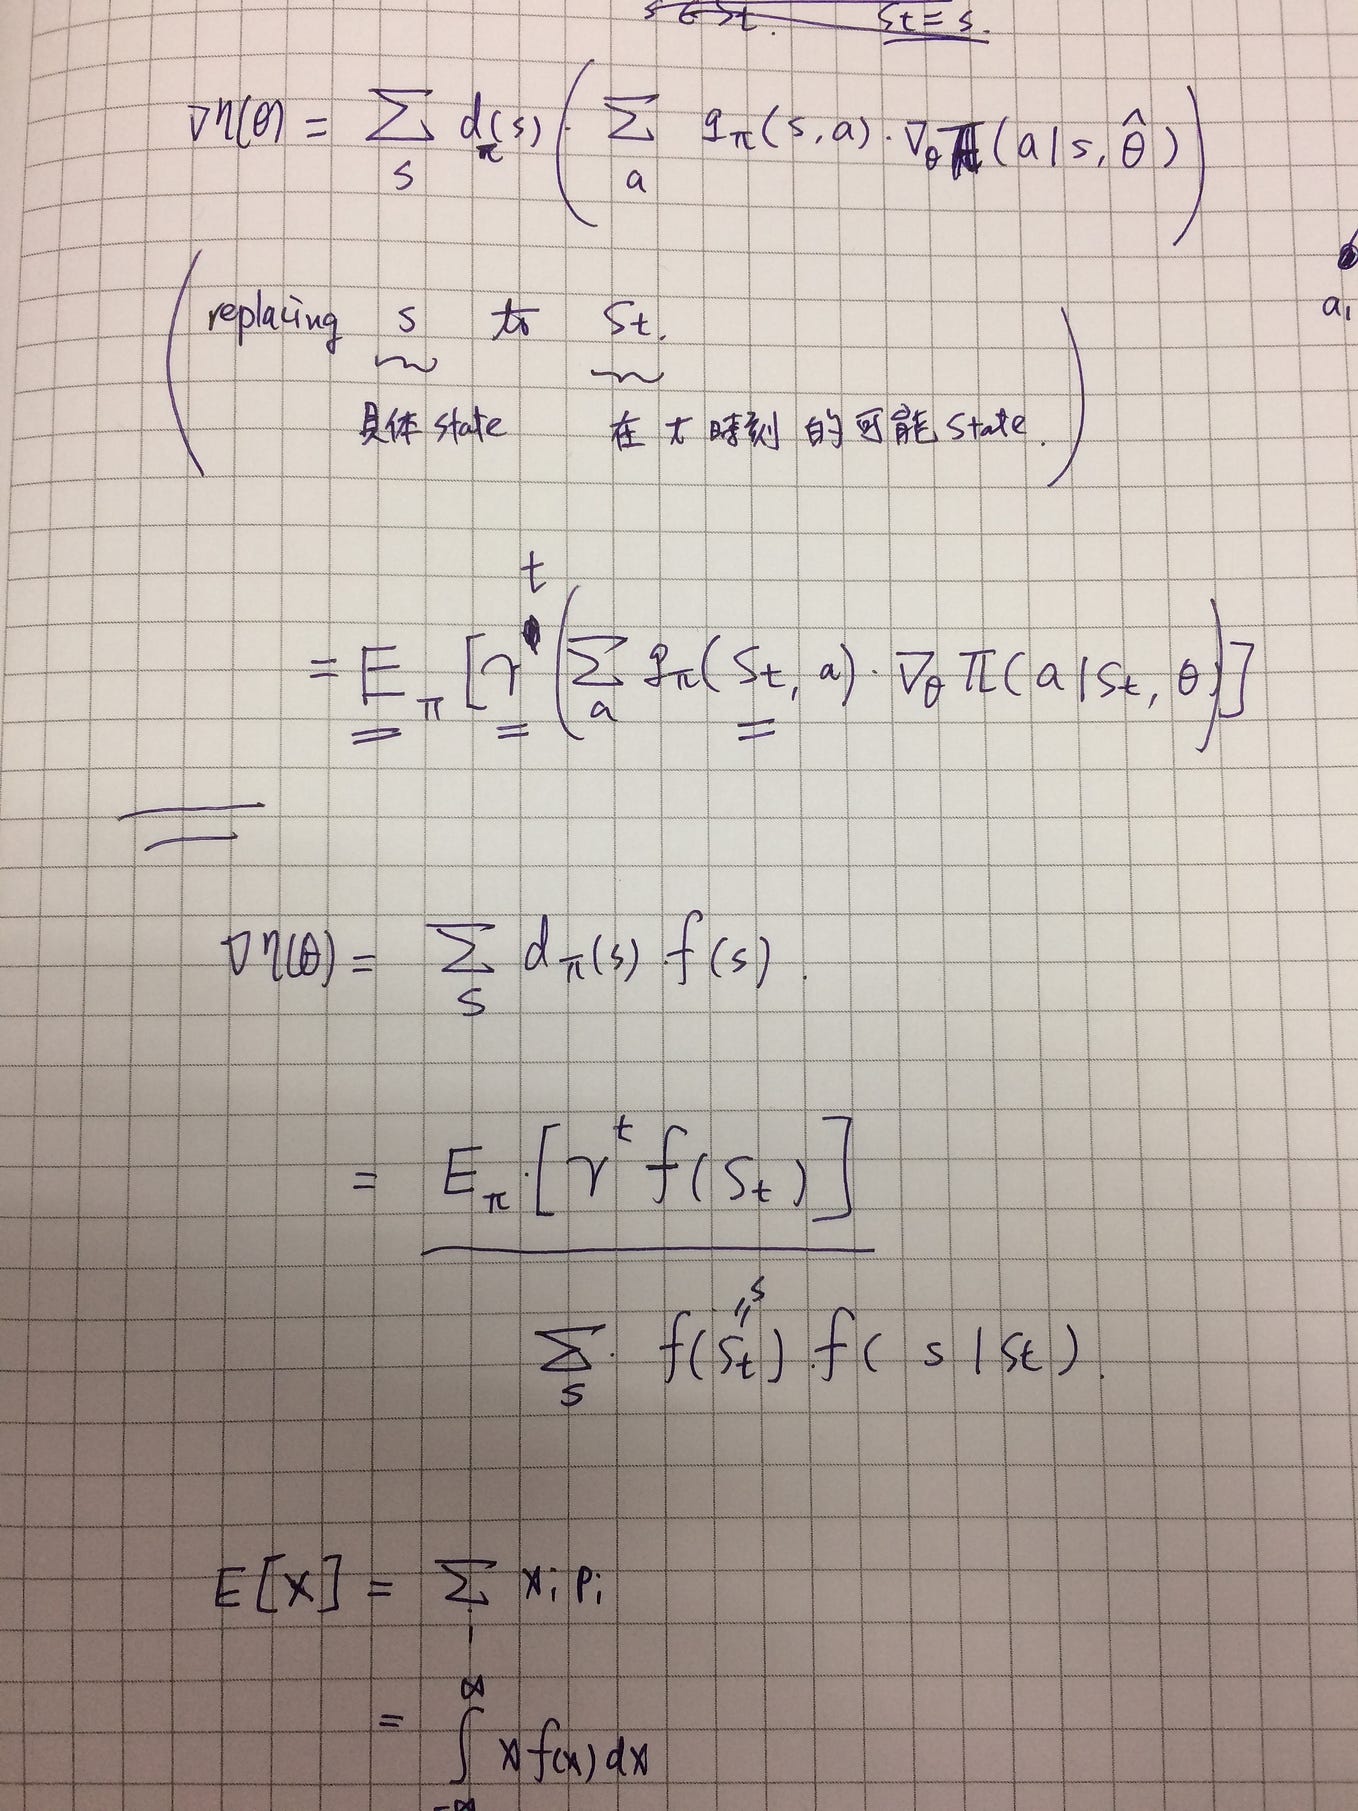 St = s.
∇η(θ) = Σ_s d_π(s) · ( Σ_a q_π(s,a) · ∇_θ π(a|s, θ̂) )
a₁
( replacing s to St.
具体 state 在 t 時刻 的 可能 state. )
= E_π [ γ^t ( Σ_a q_π(St, a) · ∇_θ π(a|St, θ) ) ]
∇η(θ) = Σ_s d_π(s) · f(s).
= E_π · [ γ^t f(St) ]
Σ_s · f(St = s) · f( s | St ).
E[X] = Σ_i x_i p_i
= ∫_{-∞}^{∞} x f(x) dx